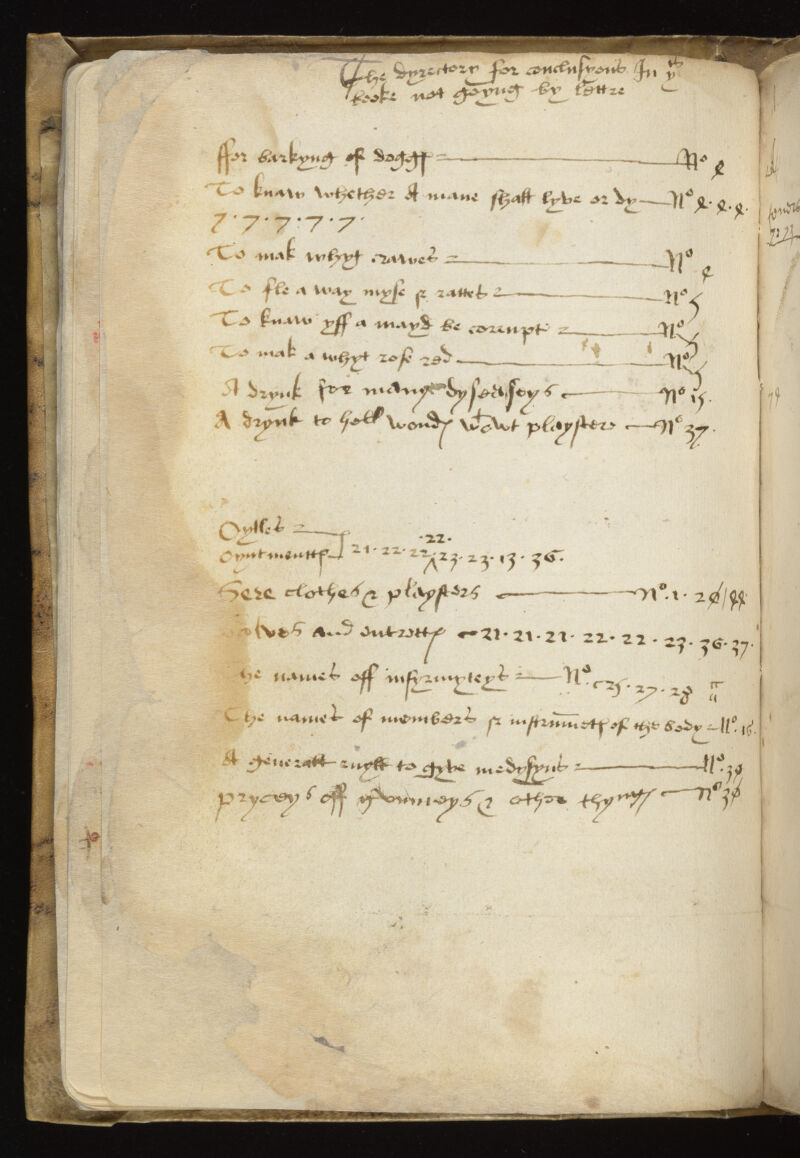 The dyrectory for conclusyons In yis
booke not goyng by lettre
ffor barkyng of dogges Nº 4
To knaw whether A mane shall lyve or dy Nº 4. 4. 4.
7. 7. 7. 7. 7.
To mak whyt Nº 4
To fle a way myse & rattes Nº 5
To knaw yff a mayd be corrupte Nº 5
To mak a whyt rose red Nº 5
A drynk for many dyseasseys Nº 15.
A drynk to hell wondes wtowt playsters Nº 37.
Oylles
oyntmenttes 21. 22. 22. 22. 23. 23. 13. 36.
Sere clothes & playsters Nº. 1. 20/44
and 21. 21. 21. 22. 22. 23. 36. 37.
he names off infyrmyteys Nº. 25. 27. 28
The names of members & instrumetes of the body Nº. 16.
A generall ruyll to gyve medysyns Nº. 30
pryceys off & other thynges Nº 30